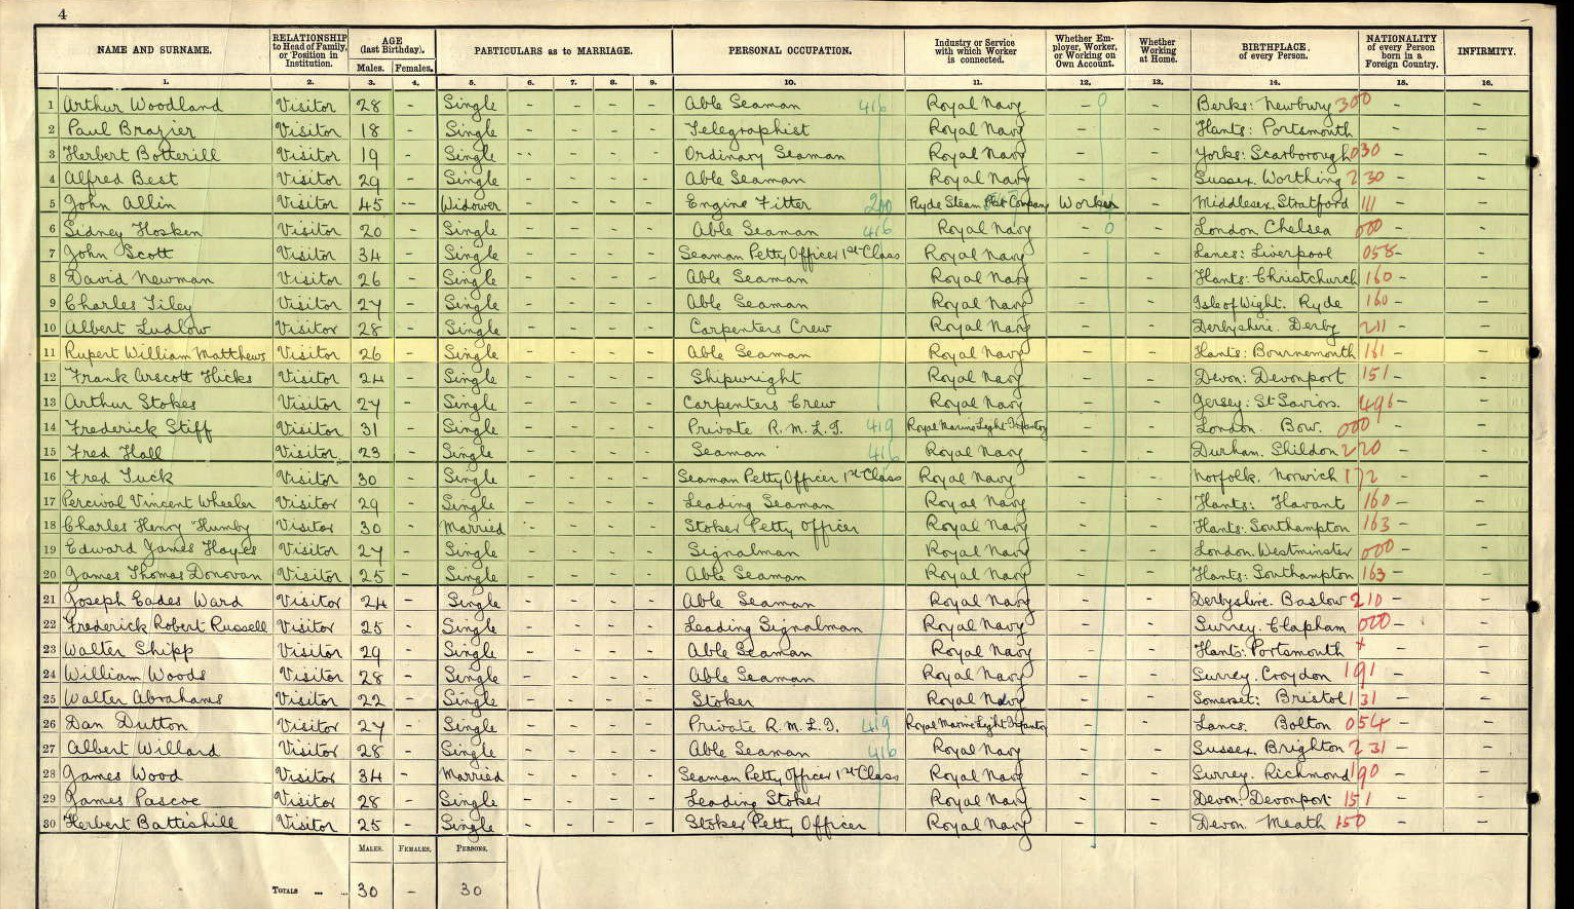 4
NAME AND SURNAME. RELATIONSHIP to Head of Family, or Position in Institution. AGE (last Birthday). Males. Females. PARTICULARS as to MARRIAGE. PERSONAL OCCUPATION. Industry or Service with which Worker is connected. Whether Employer, Worker, or Working on Own Account. Whether Working at Home. BIRTHPLACE of every Person. NATIONALITY of every Person born in a Foreign Country. INFIRMITY.
1. 2. 3. 4. 5. 6. 7. 8. 9. 10. 11. 12. 13. 14. 15. 16.
1 Arthur Woodland Visitor 28 - Single - - - - Able Seaman 416 Royal Navy - 0 - Berks: Newbury 300 - -
2 Paul Brazier Visitor 18 - Single - - - - Telegraphist Royal Navy - - Hants: Portsmouth - -
3 Herbert Botterill Visitor 19 - Single - - - - Ordinary Seaman Royal Navy - - Yorks: Scarborough 030 - -
4 Alfred Best Visitor 29 - Single - - - - Able Seaman Royal Navy - - Sussex. Worthing 230 - -
5 John Allin Visitor 45 - Widower - - - - Engine Fitter 200 Ryde Steam Company Worker - Middlesex. Stratford 111 - -
6 Sidney Hosken Visitor 20 - Single - - - - Able Seaman 416 Royal Navy - 0 - London Chelsea 000 - -
7 John Scott Visitor 34 - Single - - - - Seaman Petty Officer 1st Class Royal Navy - - Lancs: Liverpool 058 - -
8 David Newman Visitor 26 - Single - - - - Able Seaman Royal Navy - - Hants: Christchurch 160 - -
9 Charles Tiley Visitor 27 - Single - - - - Able Seaman Royal Navy - - Isle of Wight. Ryde 160 - -
10 Albert Ludlow Visitor 28 - Single - - - - Carpenters Crew Royal Navy - - Derbyshire. Derby 211 - -
11 Rupert William Matthews Visitor 26 - Single - - - - Able Seaman Royal Navy - - Hants: Bournemouth 161 - -
12 Frank Arscott Hicks Visitor 24 - Single - - - - Shipwright Royal Navy - - Devon: Devonport 151 - -
13 Arthur Stokes Visitor 27 - Single - - - - Carpenters Crew Royal Navy - - Jersey: St Saviors. 496 - -
14 Frederick Stiff Visitor 31 - Single - - - - Private R.M.L.I. 419 Royal Marine Light Infantry - - London. Bow. 000 - -
15 Fred Hall Visitor 23 - Single - - - - Seaman 416 Royal Navy - - Durham. Shildon 220 - -
16 Fred Tuck Visitor 30 - Single - - - - Seaman Petty Officer 1st Class Royal Navy - - Norfolk. Norwich 172 - -
17 Percival Vincent Wheeler Visitor 29 - Single - - - - Leading Seaman Royal Navy - - Hants: Havant 160 - -
18 Charles Henry Humby Visitor 30 - Married - - - - Stoker Petty Officer Royal Navy - - Hants: Southampton 163 - -
19 Edward James Hayes Visitor 27 - Single - - - - Signalman Royal Navy - - London. Westminster 000 - -
20 James Thomas Donovan Visitor 25 - Single - - - - Able Seaman Royal Navy - - Hants: Southampton 163 - -
21 Joseph Eades Ward Visitor 24 - Single - - - - Able Seaman Royal Navy - - Derbyshire. Baslow 210 - -
22 Frederick Robert Russell Visitor 25 - Single - - - - Leading Signalman Royal Navy - - Surrey. Clapham 000 - -
23 Walter Shipp Visitor 29 - Single - - - - Able Seaman Royal Navy - - Hants: Portsmouth + - -
24 William Woods Visitor 28 - Single - - - - Able Seaman Royal Navy - - Surrey. Croydon 191 - -
25 Walter Abrahams Visitor 22 - Single - - - - Stoker Royal Navy - - Somerset: Bristol 131 - -
26 Dan Dutton Visitor 27 - Single - - - - Private R.M.L.I. 419 Royal Marine Light Infantry - - Lancs. Bolton 054 - -
27 Albert Willard Visitor 28 - Single - - - - Able Seaman 416 Royal Navy - - Sussex. Brighton 231 - -
28 James Wood Visitor 34 - Married - - - - Seaman Petty Officer 1st Class Royal Navy - - Surrey. Richmond 190 - -
29 James Pascoe Visitor 28 - Single - - - - Leading Stoker Royal Navy - - Devon: Devonport 151 - -
30 Herbert Battishill Visitor 25 - Single - - - - Stoker Petty Officer Royal Navy - - Devon. Meath 150 - -
MALES. FEMALES. PERSONS.
TOTALS 30 - 30